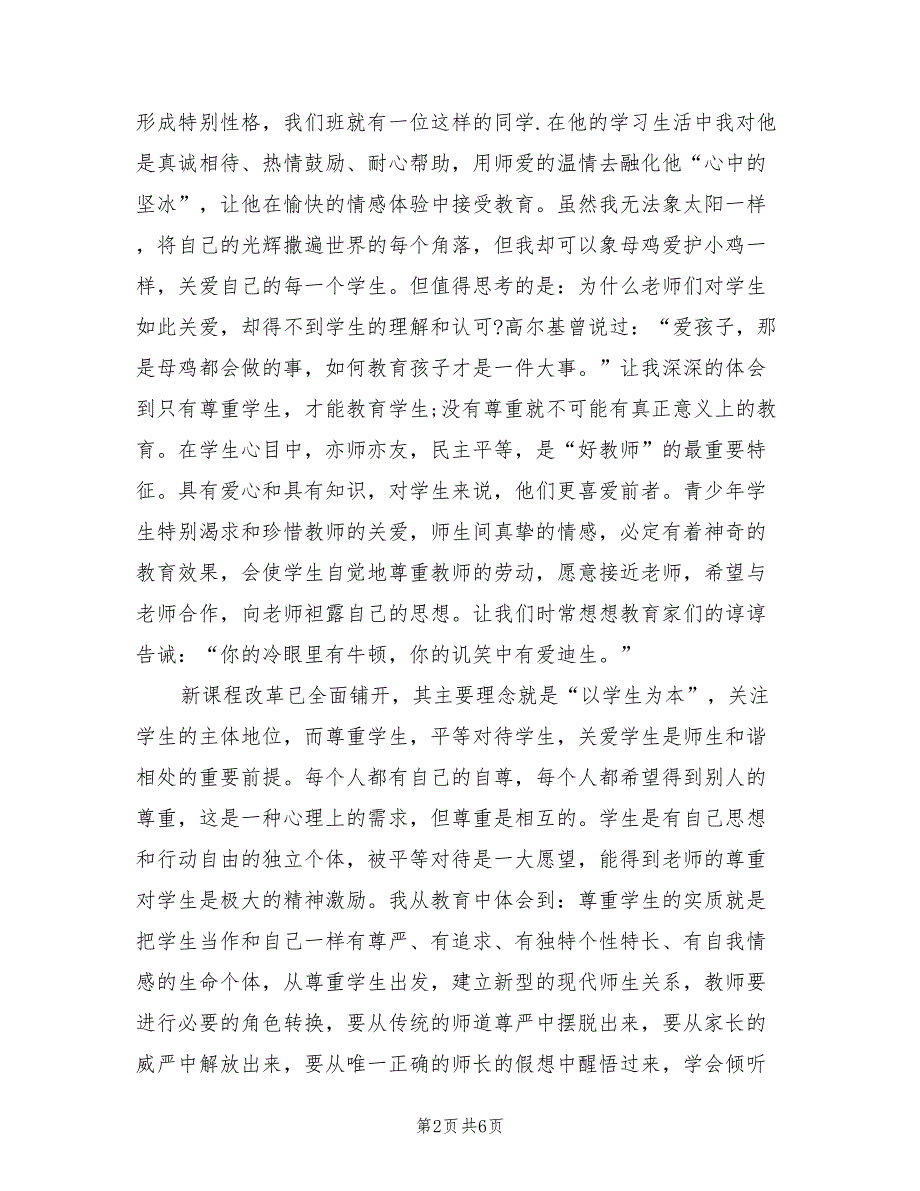 形成特别性格，我们班就有一位这样的同学.在他的学习生活中我对他
是真诚相待、热情鼓励、耐心帮助，用师爱的温情去融化他“心中的
坚冰”，让他在愉快的情感体验中接受教育。虽然我无法象太阳一样
，将自己的光辉撒遍世界的每个角落，但我却可以象母鸡爱护小鸡一
样，关爱自己的每一个学生。但值得思考的是：为什么老师们对学生
如此关爱，却得不到学生的理解和认可?高尔基曾说过：“爱孩子，那
是母鸡都会做的事，如何教育孩子才是一件大事。”让我深深的体会
到只有尊重学生，才能教育学生;没有尊重就不可能有真正意义上的教
育。在学生心目中，亦师亦友，民主平等，是“好教师”的最重要特
征。具有爱心和具有知识，对学生来说，他们更喜爱前者。青少年学
生特别渴求和珍惜教师的关爱，师生间真挚的情感，必定有着神奇的
教育效果，会使学生自觉地尊重教师的劳动，愿意接近老师，希望与
老师合作，向老师袒露自己的思想。让我们时常想想教育家们的谆谆
告诫：“你的冷眼里有牛顿，你的讥笑中有爱迪生。”
新课程改革已全面铺开，其主要理念就是“以学生为本”，关注
学生的主体地位，而尊重学生，平等对待学生，关爱学生是师生和谐
相处的重要前提。每个人都有自己的自尊，每个人都希望得到别人的
尊重，这是一种心理上的需求，但尊重是相互的。学生是有自己思想
和行动自由的独立个体，被平等对待是一大愿望，能得到老师的尊重
对学生是极大的精神激励。我从教育中体会到：尊重学生的实质就是
把学生当作和自己一样有尊严、有追求、有独特个性特长、有自我情
感的生命个体，从尊重学生出发，建立新型的现代师生关系，教师要
进行必要的角色转换，要从传统的师道尊严中摆脱出来，要从家长的
威严中解放出来，要从唯一正确的师长的假想中醒悟过来，学会倾听
第2页 共6页